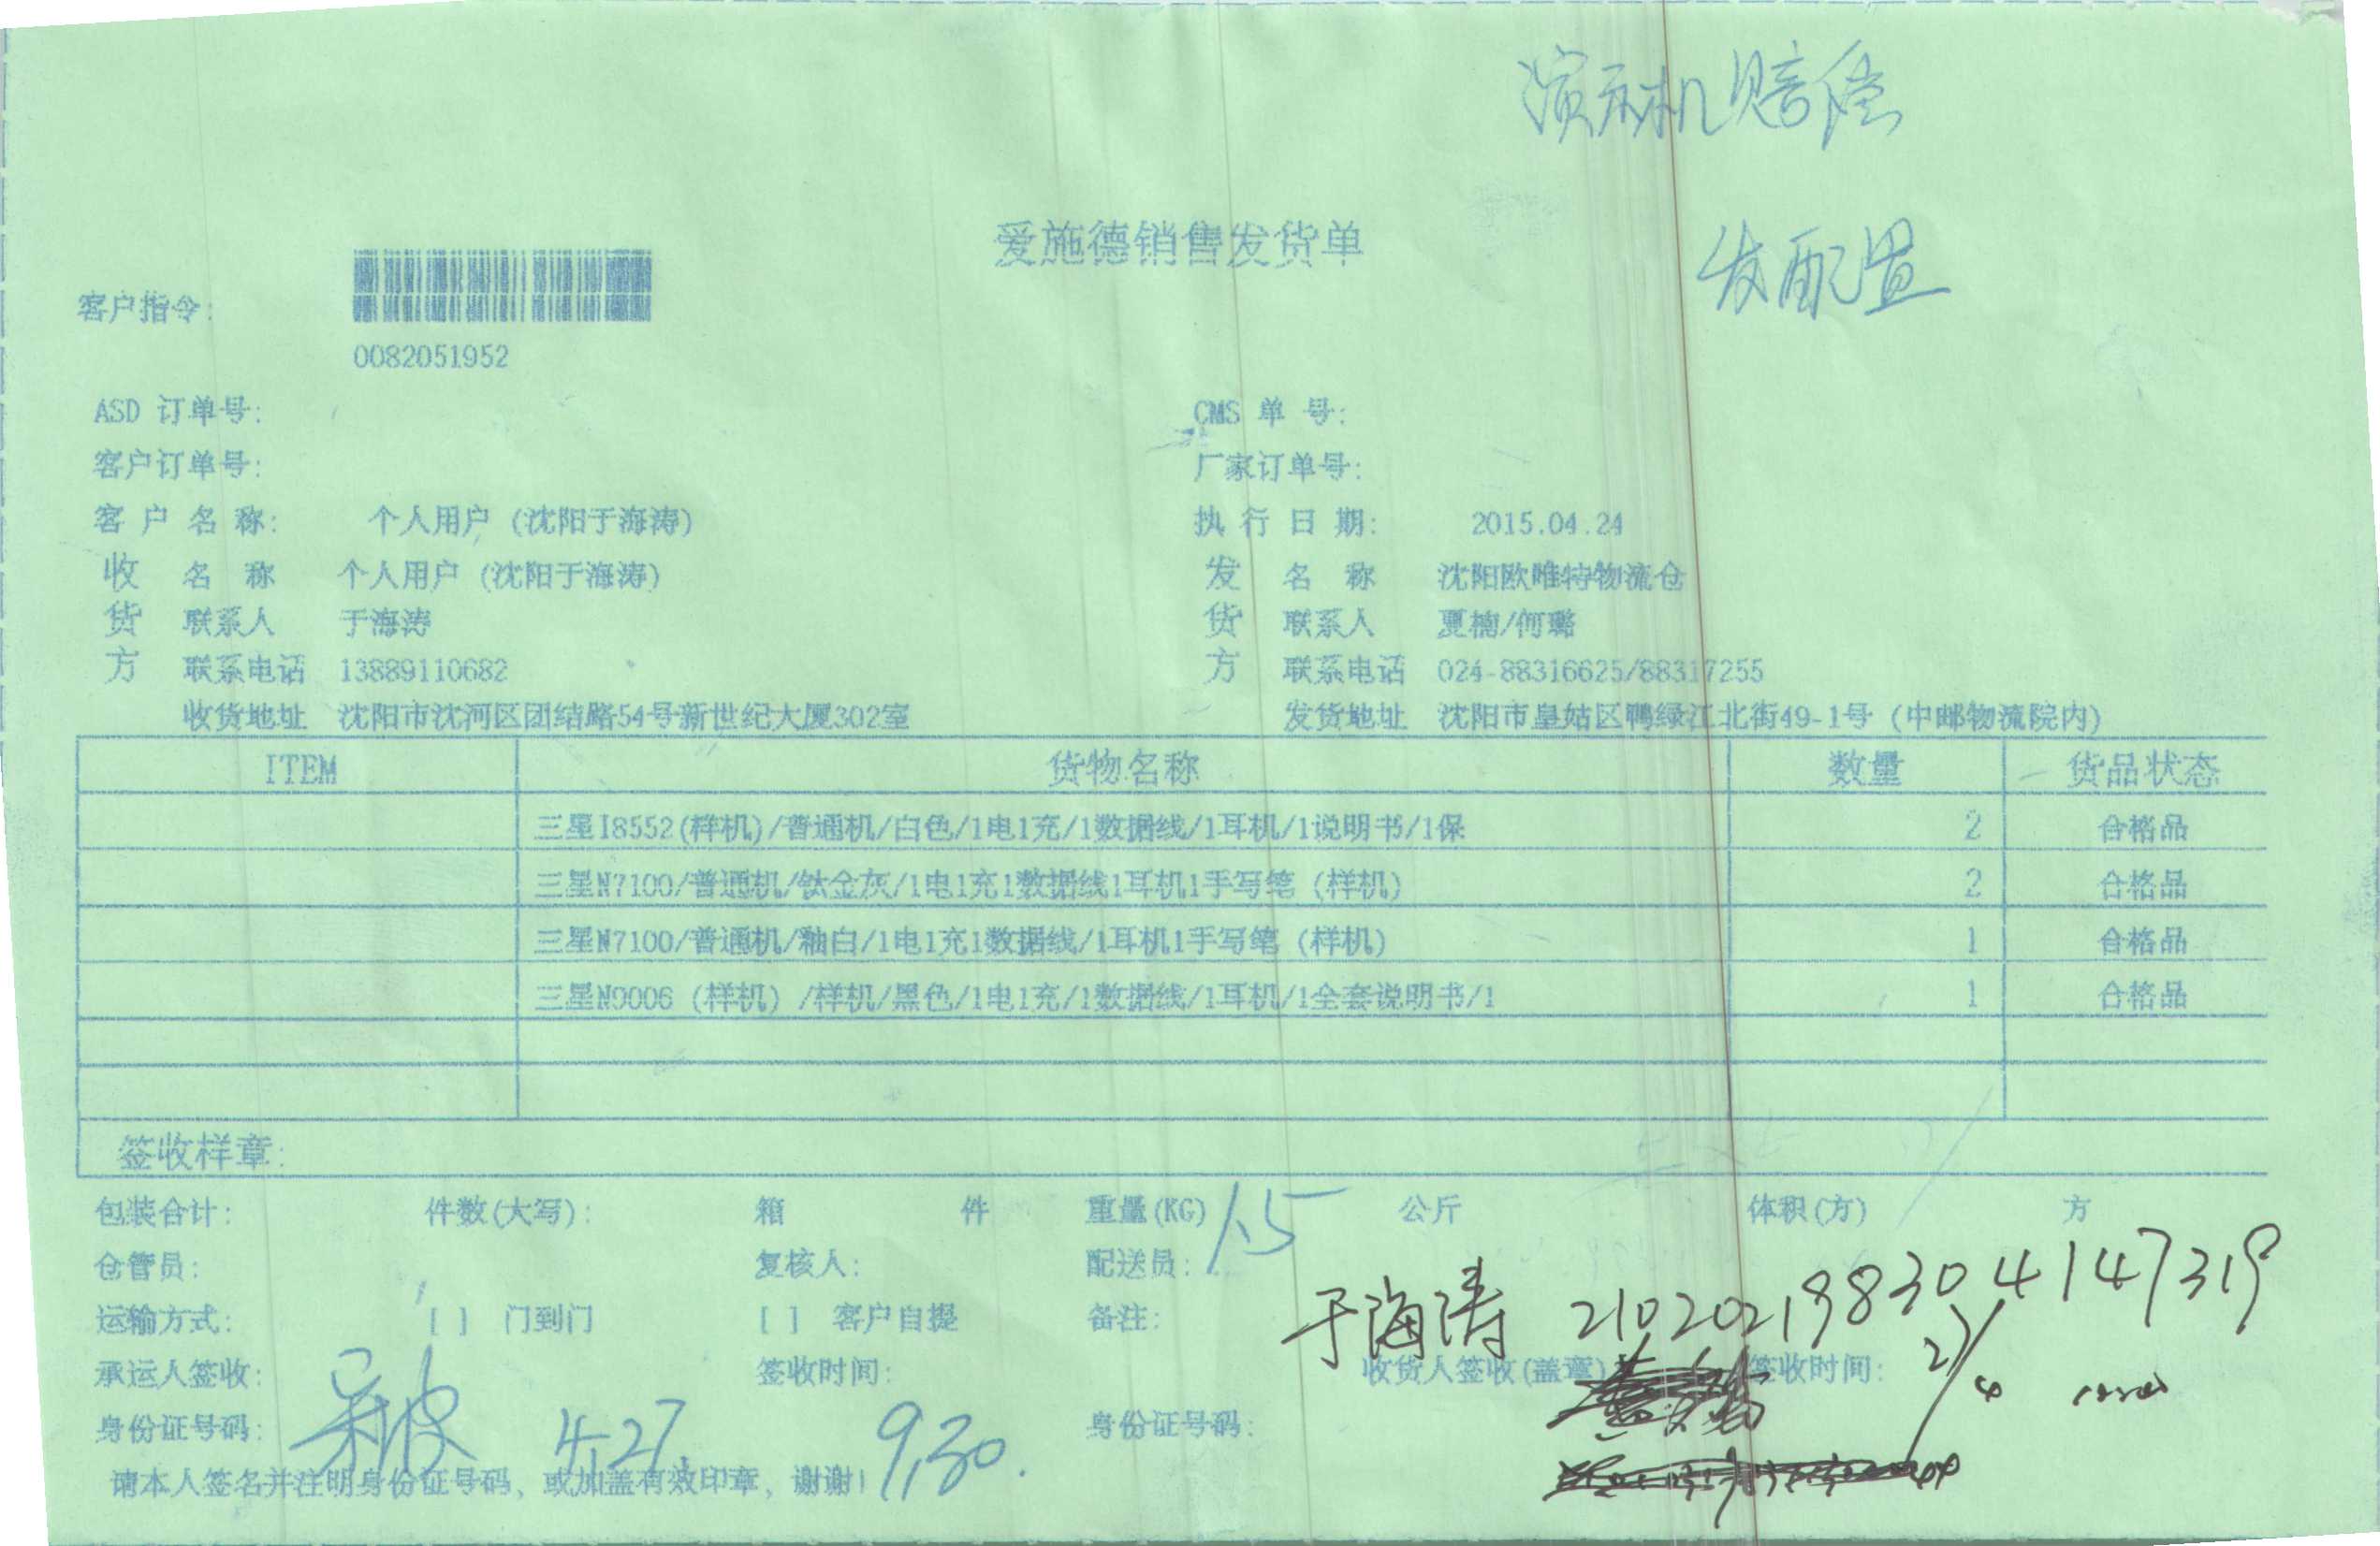 演示机赔偿
爱施德销售发货单
发配置
客户指令:
0082051952
ASD 订单号:
CMS 单 号:
客户订单号:
厂家订单号:
客 户 名 称: 个人用户 (沈阳于海涛)
执 行 日 期: 2015.04.24
收 名 称 个人用户 (沈阳于海涛)
发 名 称 沈阳欧唯特物流仓
货 联系人 于海涛
货 联系人 夏楠/何璐
方 联系电话 13889110682
方 联系电话 024-88316625/88317255
收货地址 沈阳市沈河区团结路54号新世纪大厦302室
发货地址 沈阳市皇姑区鸭绿江北街49-1号 (中邮物流院内)
ITEM 货物名称 数量 货品状态
三星I8552(样机)/普通机/白色/1电1充/1数据线/1耳机/1说明书/1保 2 合格品
三星N7100/普通机/钛金灰/1电1充1数据线1耳机1手写笔 (样机) 2 合格品
三星N7100/普通机/釉白/1电1充1数据线/1耳机1手写笔 (样机) 1 合格品
三星N9006 (样机) /样机/黑色/1电1充/1数据线/1耳机/1全套说明书/1 1 合格品
签收样章:
包装合计: 件数(大写): 箱 件 重量(KG) 1.5 公斤 体积(方) 方
仓管员: 复核人: 配送员:
运输方式: [ ] 门到门 [ ] 客户自提 备注:
于海涛 210202198304147319
承运人签收: 签收时间: 收货人签收(盖章) 签收时间:
身份证号码: 身份证号码:
吴波 4.27. 9.30.
请本人签名并注明身份证号码、或加盖有效印章、谢谢!